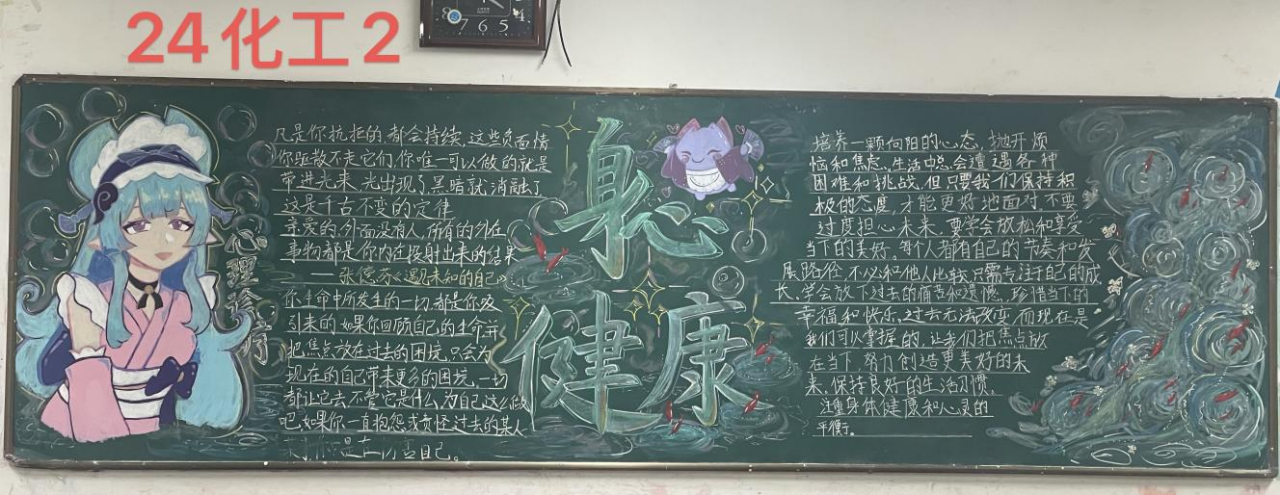 24化工2
8 7 6 5
凡是你抗拒的都会持续.这些负面情
你驱散不走它们.你唯一可以做的就是
带进光来.光出现了黑暗就消融了
这是千古不变的定律
亲爱的.外面没有人.所有的外在
事物都是你内在投射出来的结果
——张德芬《遇见未知的自己》
你生命中所发生的一切.都是你吸
引来的.如果你回顾自己的生命.
把焦点放在过去的困境.只会为
现在的自己带来更多的困境.一切
都让它去.不管它是什么.为自己这么做
吧.如果你一直抱怨或责怪过去的某人
自己。
心理
身心
健康
培养一颗向阳的心态,抛开烦
恼和焦虑.生活中总会遭遇各种
困难和挑战.但只要我们保持积
极的态度,才能更好地面对.不要
过度担心未来.要学会放松和享受
当下的美好.每个人都有自己的节奏和发
展路径.不必和他人比较.只需专注于自己的成
长.学会放下过去的痛苦和遗憾.珍惜当下的
幸福和快乐.过去无法改变.而现在是
我们可以掌握的.让我们把焦点放
在当下.努力创造更美好的未
来.保持良好的生活习惯,
注重身体健康和心灵的
平衡。